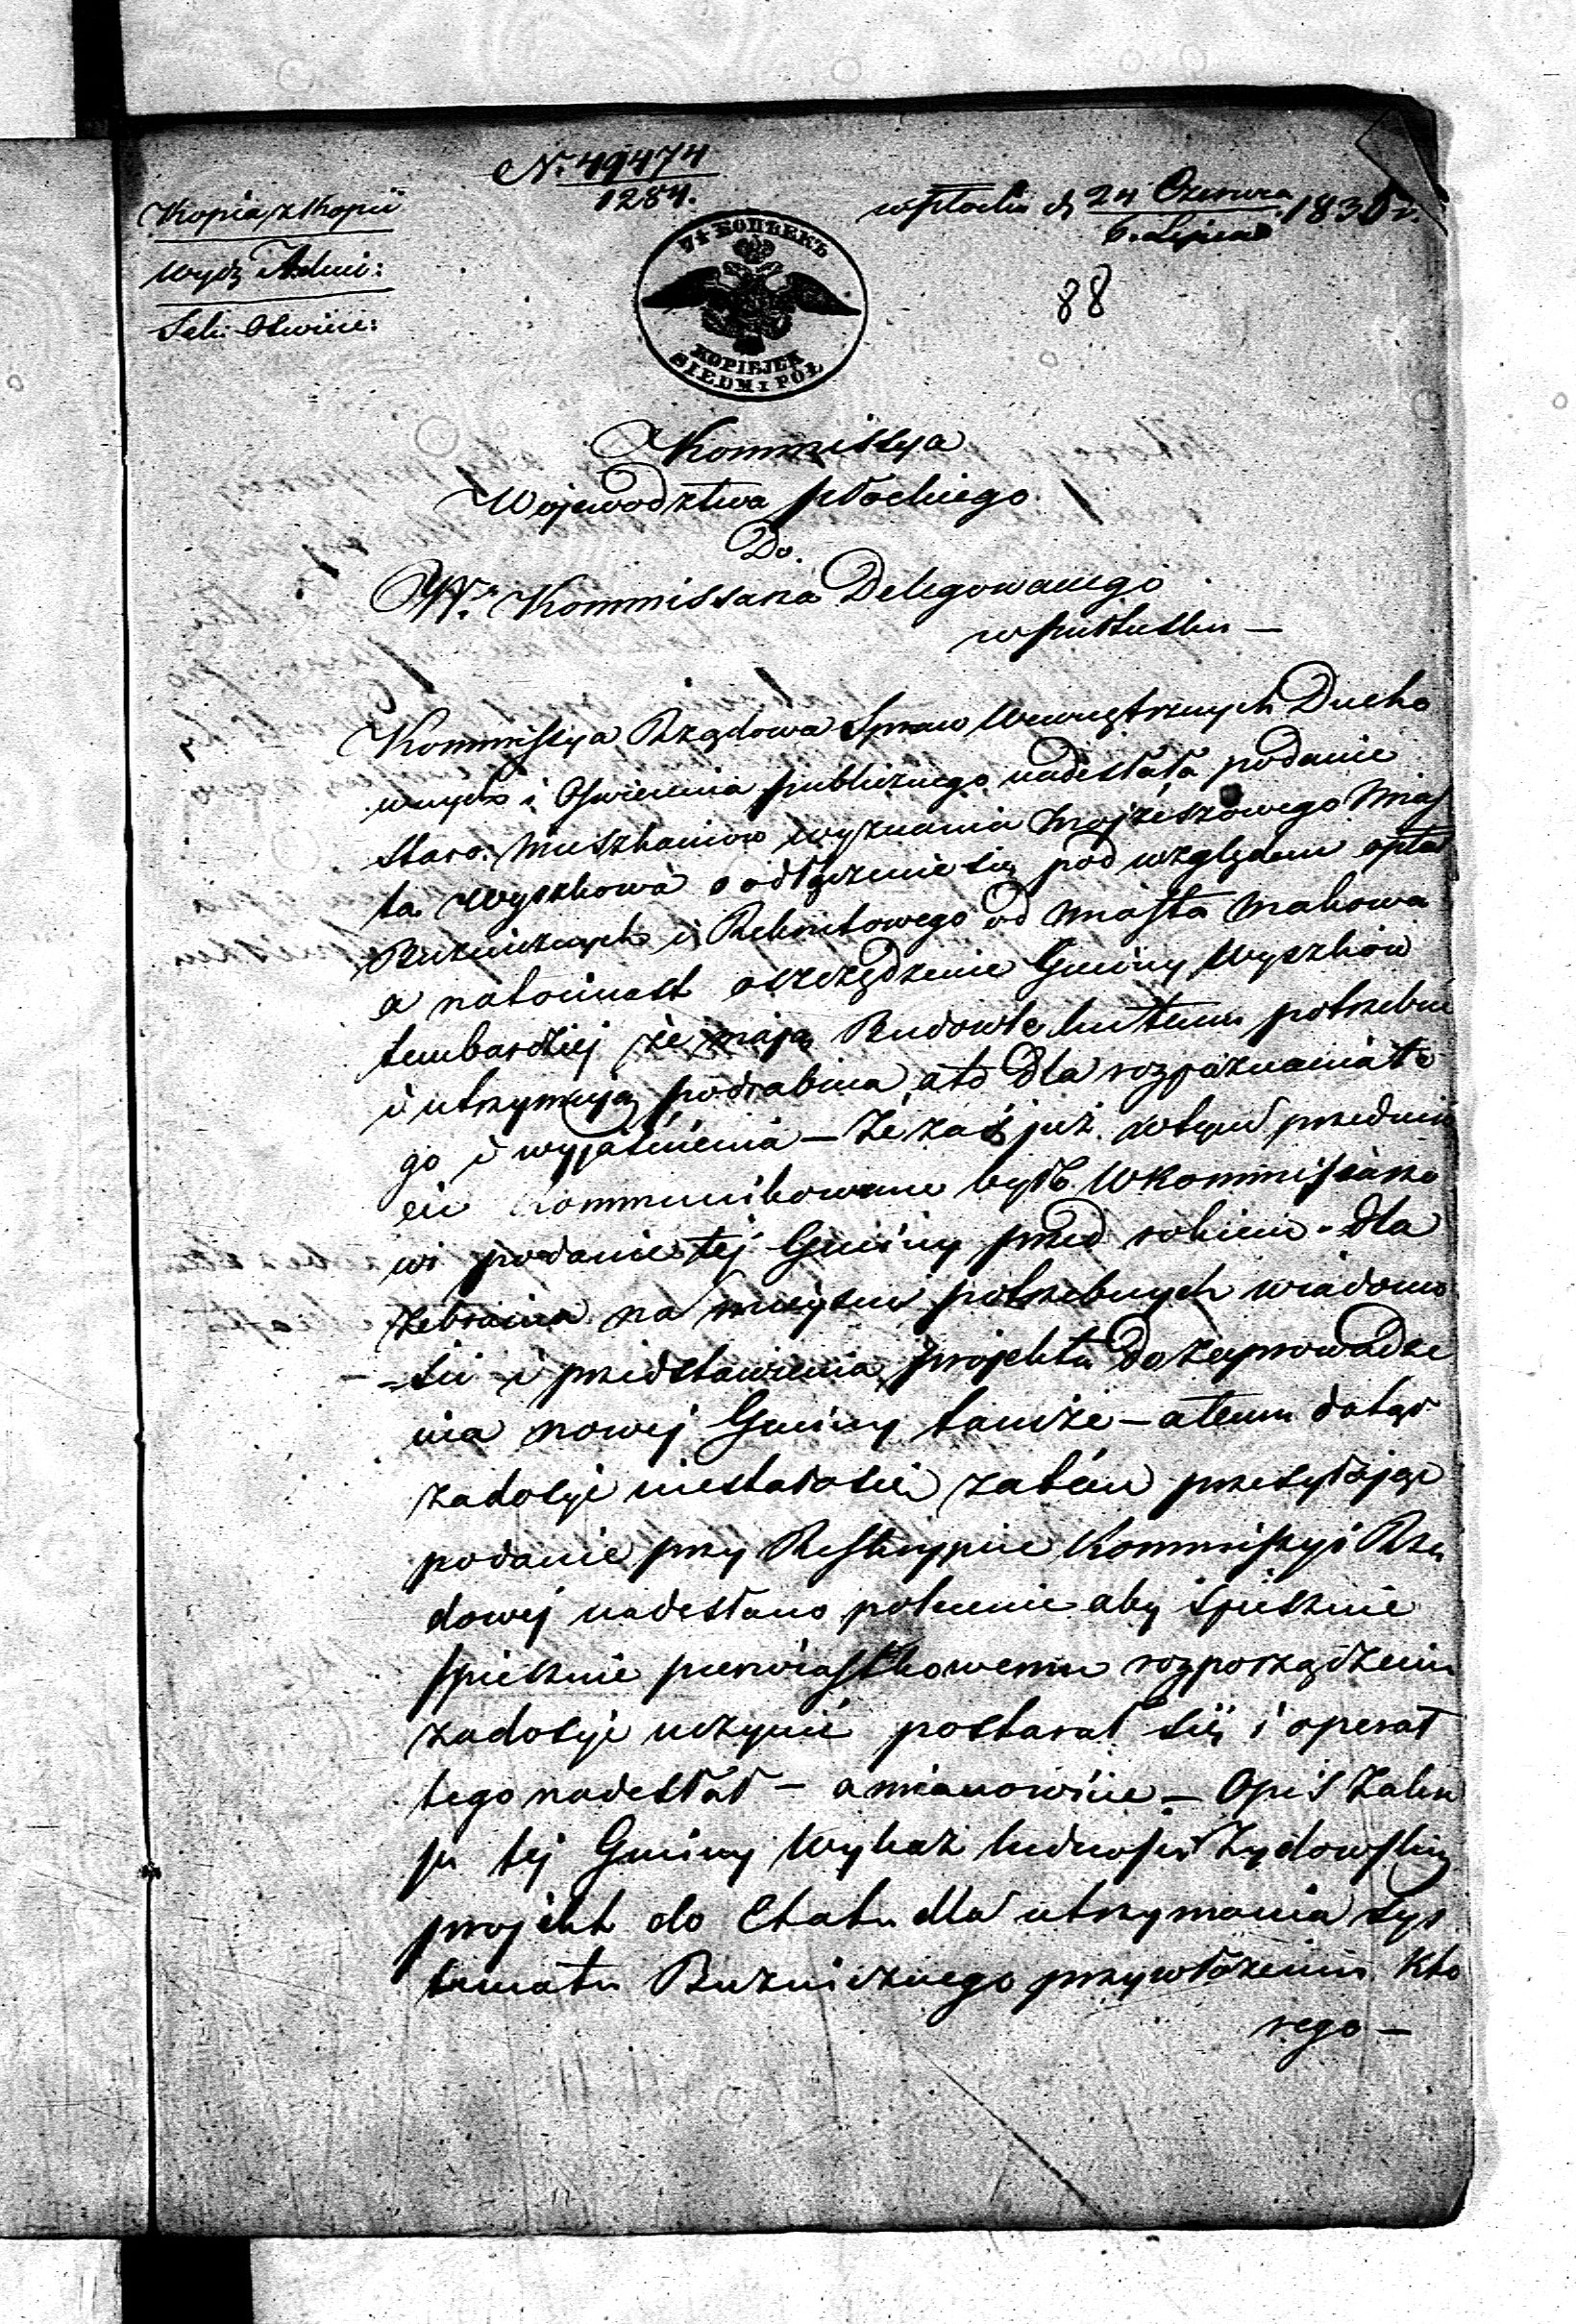 N. 49474
1284.
Kopia z Kopii
Wydz Admi:
Sek: Oświce:
w Płocku d 24 Czerwca 1836 r.
6. Lipca
88
7½ КОПѢЕКЪ
KOPIEJEK
SIEDM i PÓŁ
Kommissya
Województwa Płockiego
Do.
W. Kommissarza Delegowanego
w Pułtusku —
Kommissya Rządowa Spraw Wewnętrznych Ducho
wnych i Oświecenia publicznego nadesłała podanie
Staro. Mieszkańców wyznania Mojżeszowego Mias
ta Wyszkowa o odłączenie się pod względem opłat
Bużnicznych i Rekrutowego od Miasta Makowa
a natomiast o urządzenie Gminy Wyszków
tembardziej że mają Budowle ku temu potrzebne
i utrzymują podrabina, a to dla rozpoznania te
go i wyjaśnienia — Że zaś już w tym przedmio
cie kommunikowane było W Kommissarzo
wi podanie tej Gminy przed rokiem dla
zebrania na miejscu potrzebnych wiadomo
-ści i przedstawienia projektu do zaprowadze
nia nowej Gminy tamże — a temu dotąd
zadosyć niestało się zatem przesyłając
podanie przy Reskrypcie Kommissyi Rzą
dowej nadesłano polecenie aby śpiesznie
śpiesznie pierwiastkowemu rozporządzeniu
zadosyć uczynić postarał się i operat
tego nadesłał — a mianowicie — Opis Zakre
su tej Gminy Wykaz ludności Żydowskiej
projekt do Etatu dla utrzymania Sys
tematu Bużnicznego przy włożeniu Któ
rego —